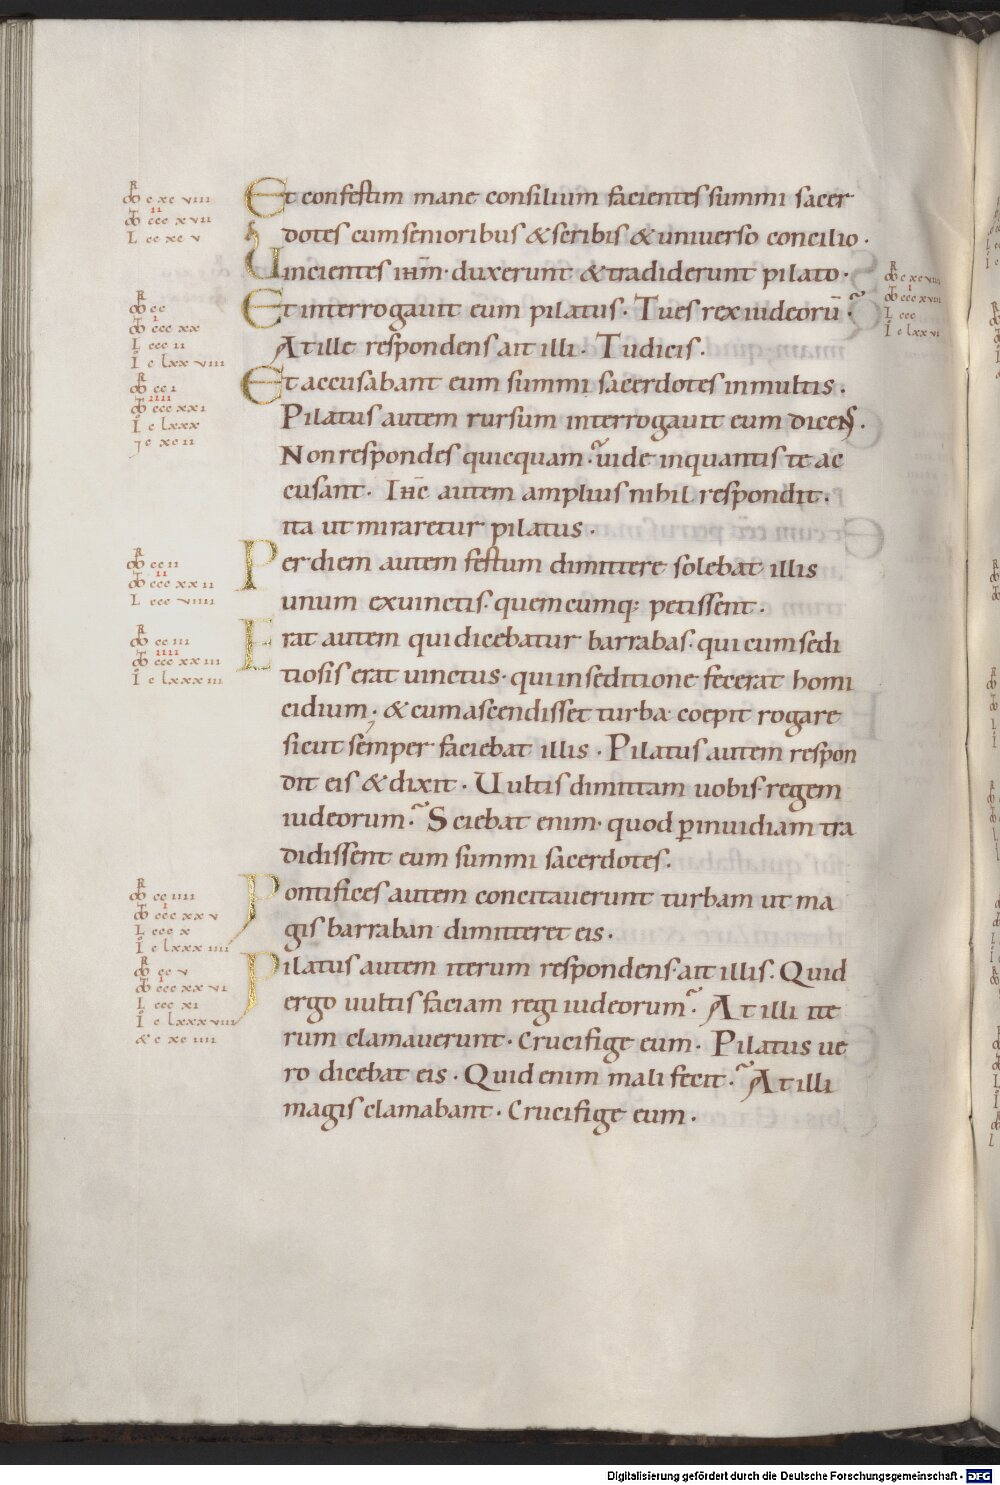 Et confestim mane consilium facientes summi sacer
dotes cum senioribus & scribis & universo concilio ·
Uincientes ihm̅ · duxerunt & tradiderunt pilato ·
Et interrogauit eum pilatus · Tu es rex iudeorū ·
At ille respondens ait illi · Tu dicis ·
Et accusabant eum summi sacerdotes in multis ·
Pilatus autem rursum interrogauit eum dicens ·
Non respondes quicquam · uide in quantis te ac
cusant · Ihc̅ autem amplius nihil respondit ·
ita ut miraretur pilatus ·
Per diem autem festum dimittere solebat illis
unum ex uinctis · quemcumq; petissent ·
Erat autem qui dicebatur barrabas · qui cum sedi
tiosis erat uinctus · qui in seditione fecerat homi
cidium · & cum ascendisset turba coepit rogare
sicut semper faciebat illis · Pilatus autem respon
dit eis & dixit · Uultis dimittam uobis regem
iudeorum · Sciebat enim · quod ꝑ inuidiam tra
didissent eum summi sacerdotes ·
Pontifices autem concitauerunt turbam ut ma
gis barraban dimitteret eis ·
Pilatus autem iterum respondens ait illis · Quid
ergo uultis faciam regi iudeorum · At illi ite
rum clamauerunt · Crucifige eum · Pilatus ue
ro dicebat eis · Quid enim mali fecit · At illi
magis clamabant · Crucifige eum ·
Digitalisierung gefördert durch die Deutsche Forschungsgemeinschaft - DFG